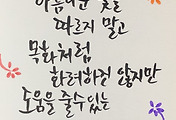 아름다운 꽃을
따르지 말고
목화처럼
화려하진 않지만
도움을 줄 수 있는